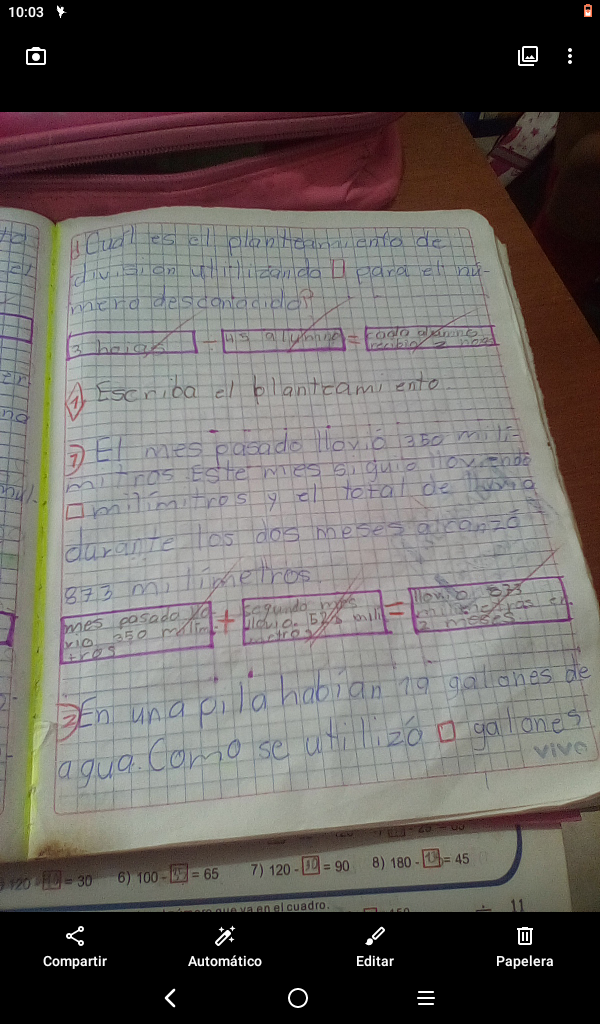 10:03
¿Cual es el planteamiento de
división utilizando □ para el nú-
mero desconocido?
3 hojas ÷ 45 alumno = cada alumno
recibio 2 hoja
1 Escriba el planteamiento.
1 El mes pasado llovió 350 milí-
mitros Este mes siguio lloviendo
□ milímitros y el total de lluvia
durante los dos meses alcanzó
873 milímetros.
mes pasado llo
vio 350 milim
tros
+
segundo mes
llovio 523 mili
metros
=
llovio 873
milimetros en
2 meses
2 En una pila habían 19 galones de
agua. Como se utilizó □ galones
vivo
120 - = 30 6) 100 - 35 = 65 7) 120 - 30 = 90 8) 180 - = 45
que va en el cuadro.
11
Compartir Automático Editar Papelera